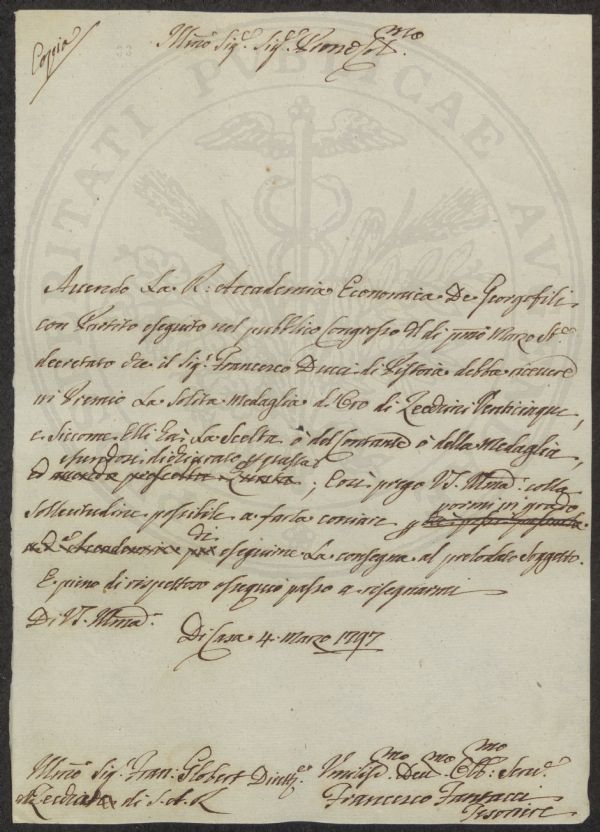 Copia
Illmo Sig.r Sig.r Prone Col.mo
Avendo La R: Accademia Economica De Georgofili
con Partito eseguito nel pubblico Congresso del di pmo Marzo St.e
decretato che il Sig.r Francesco Ducci di Pistoia debba ricevere
in Premio La Solita Medaglia d'Oro di Zecchini Venticinque,
e siccome Elli ha La Scelta o del contante o della Medaglia,
essendosi dichiarato p questa
ed ; Così prego VS. Illma: colla
pormi in grado
sollecitudine possibile a farla coniare
di
eseguirne La consegna al prelodato Soggetto.
E pieno di rispettoso ossequio passo a rassegnarmi
Di VS. Illma:
Di Casa 4. Marzo 1797
Illmo Sig.r Fran: Globert Dirett.e
Zecca di S.A.R
Umiliss.mo Dev.mo Obb.mo Serv.e
Francesco Fantacci
Tesoriere
PUBLICAE